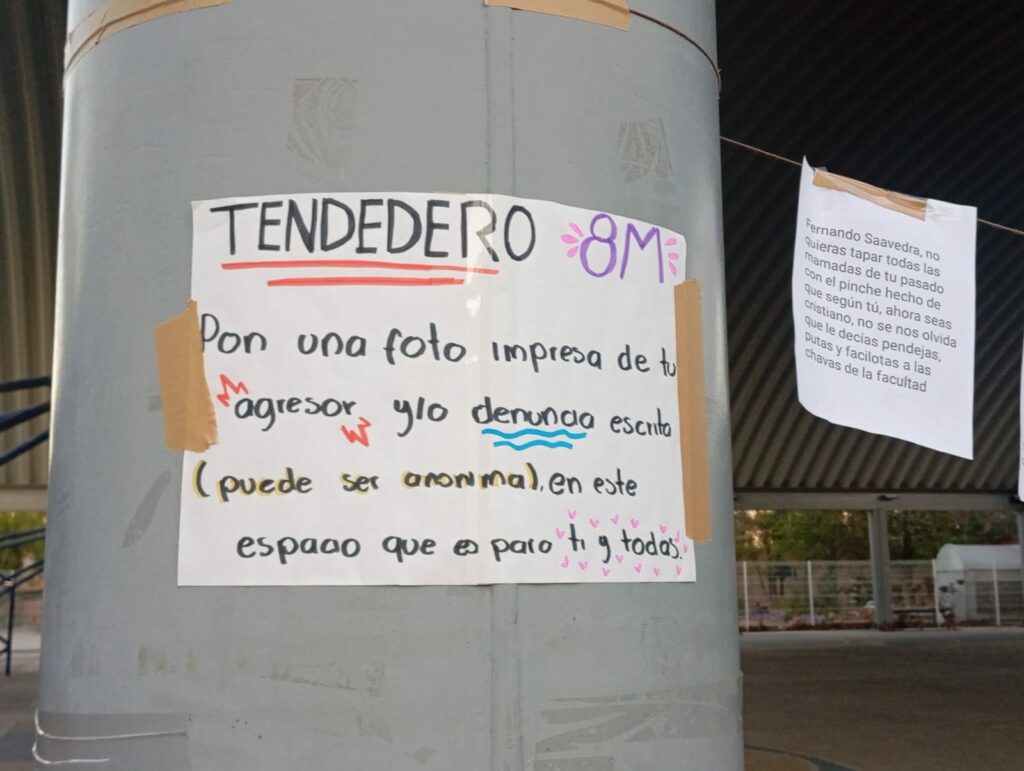 TENDEDERO 8M
Pon una foto impresa de tu
agresor y/o denuncia escrita
(puede ser anonima), en este
espacio que es para ti y todas.
Fernando Saavedra, no
quieras tapar todas las
mamadas de tu pasado
con el pinche hecho de
que según tú, ahora seas
cristiano, no se nos olvida
que le decías pendejas,
putas y facilotas a las
chavas de la facultad